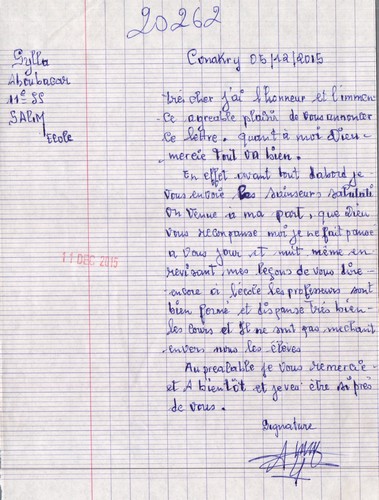 20262
Sylla
Aboubacar
11e SS
SALIM
Ecole
Conakry 05/12/2015
très cher j'ai l'honneur et l'immen-
ce agreable plaisir de vous annonter
ce lettre. quant à moi Dieu-
mercie tout va bien.
En effet avant tout d'abord je
vous envoie les sainseurs salutati
on venue a ma part, que Dieu
vous recompanse moi je ne fait panse
a vous jour et nuit même en
revisant mes leçons de vous dire
encore ici l'école les professeurs sont
bien formé et dispanse très bien
les cours et Il ne sont pas mechant
envers nous les élèves
Au prealable je vous remercie
et A bientôt et je ves être si près
de vous.
11 DEC 2015
Signature